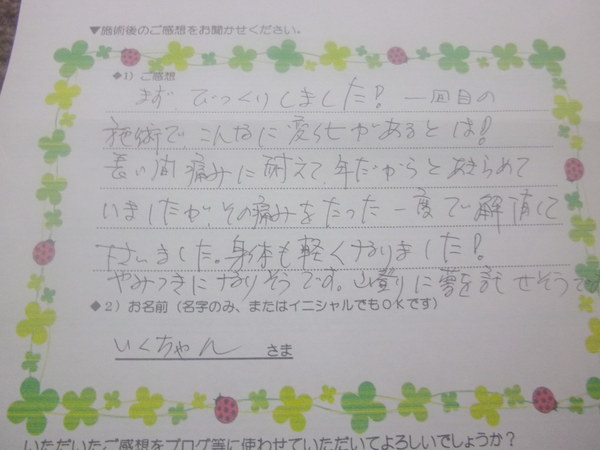 ▼施術後のご感想をお聞かせください。
◆1）ご感想
まず びっくりしました！ 一回目の
施術で、こんなに変化があるとは！
長い間 痛みに耐えて、年だからとあきらめて
いましたが、その痛みをたった一度で解消して
下さいました。身体も軽くなりました！
やみつきになりそうです。山登りに夢を託せそうです
◆2）お名前（名字のみ、またはイニシャルでもＯＫです）
いくちゃん さま
いただいたご感想をブログ等に使わせていただいてよろしいでしょうか？